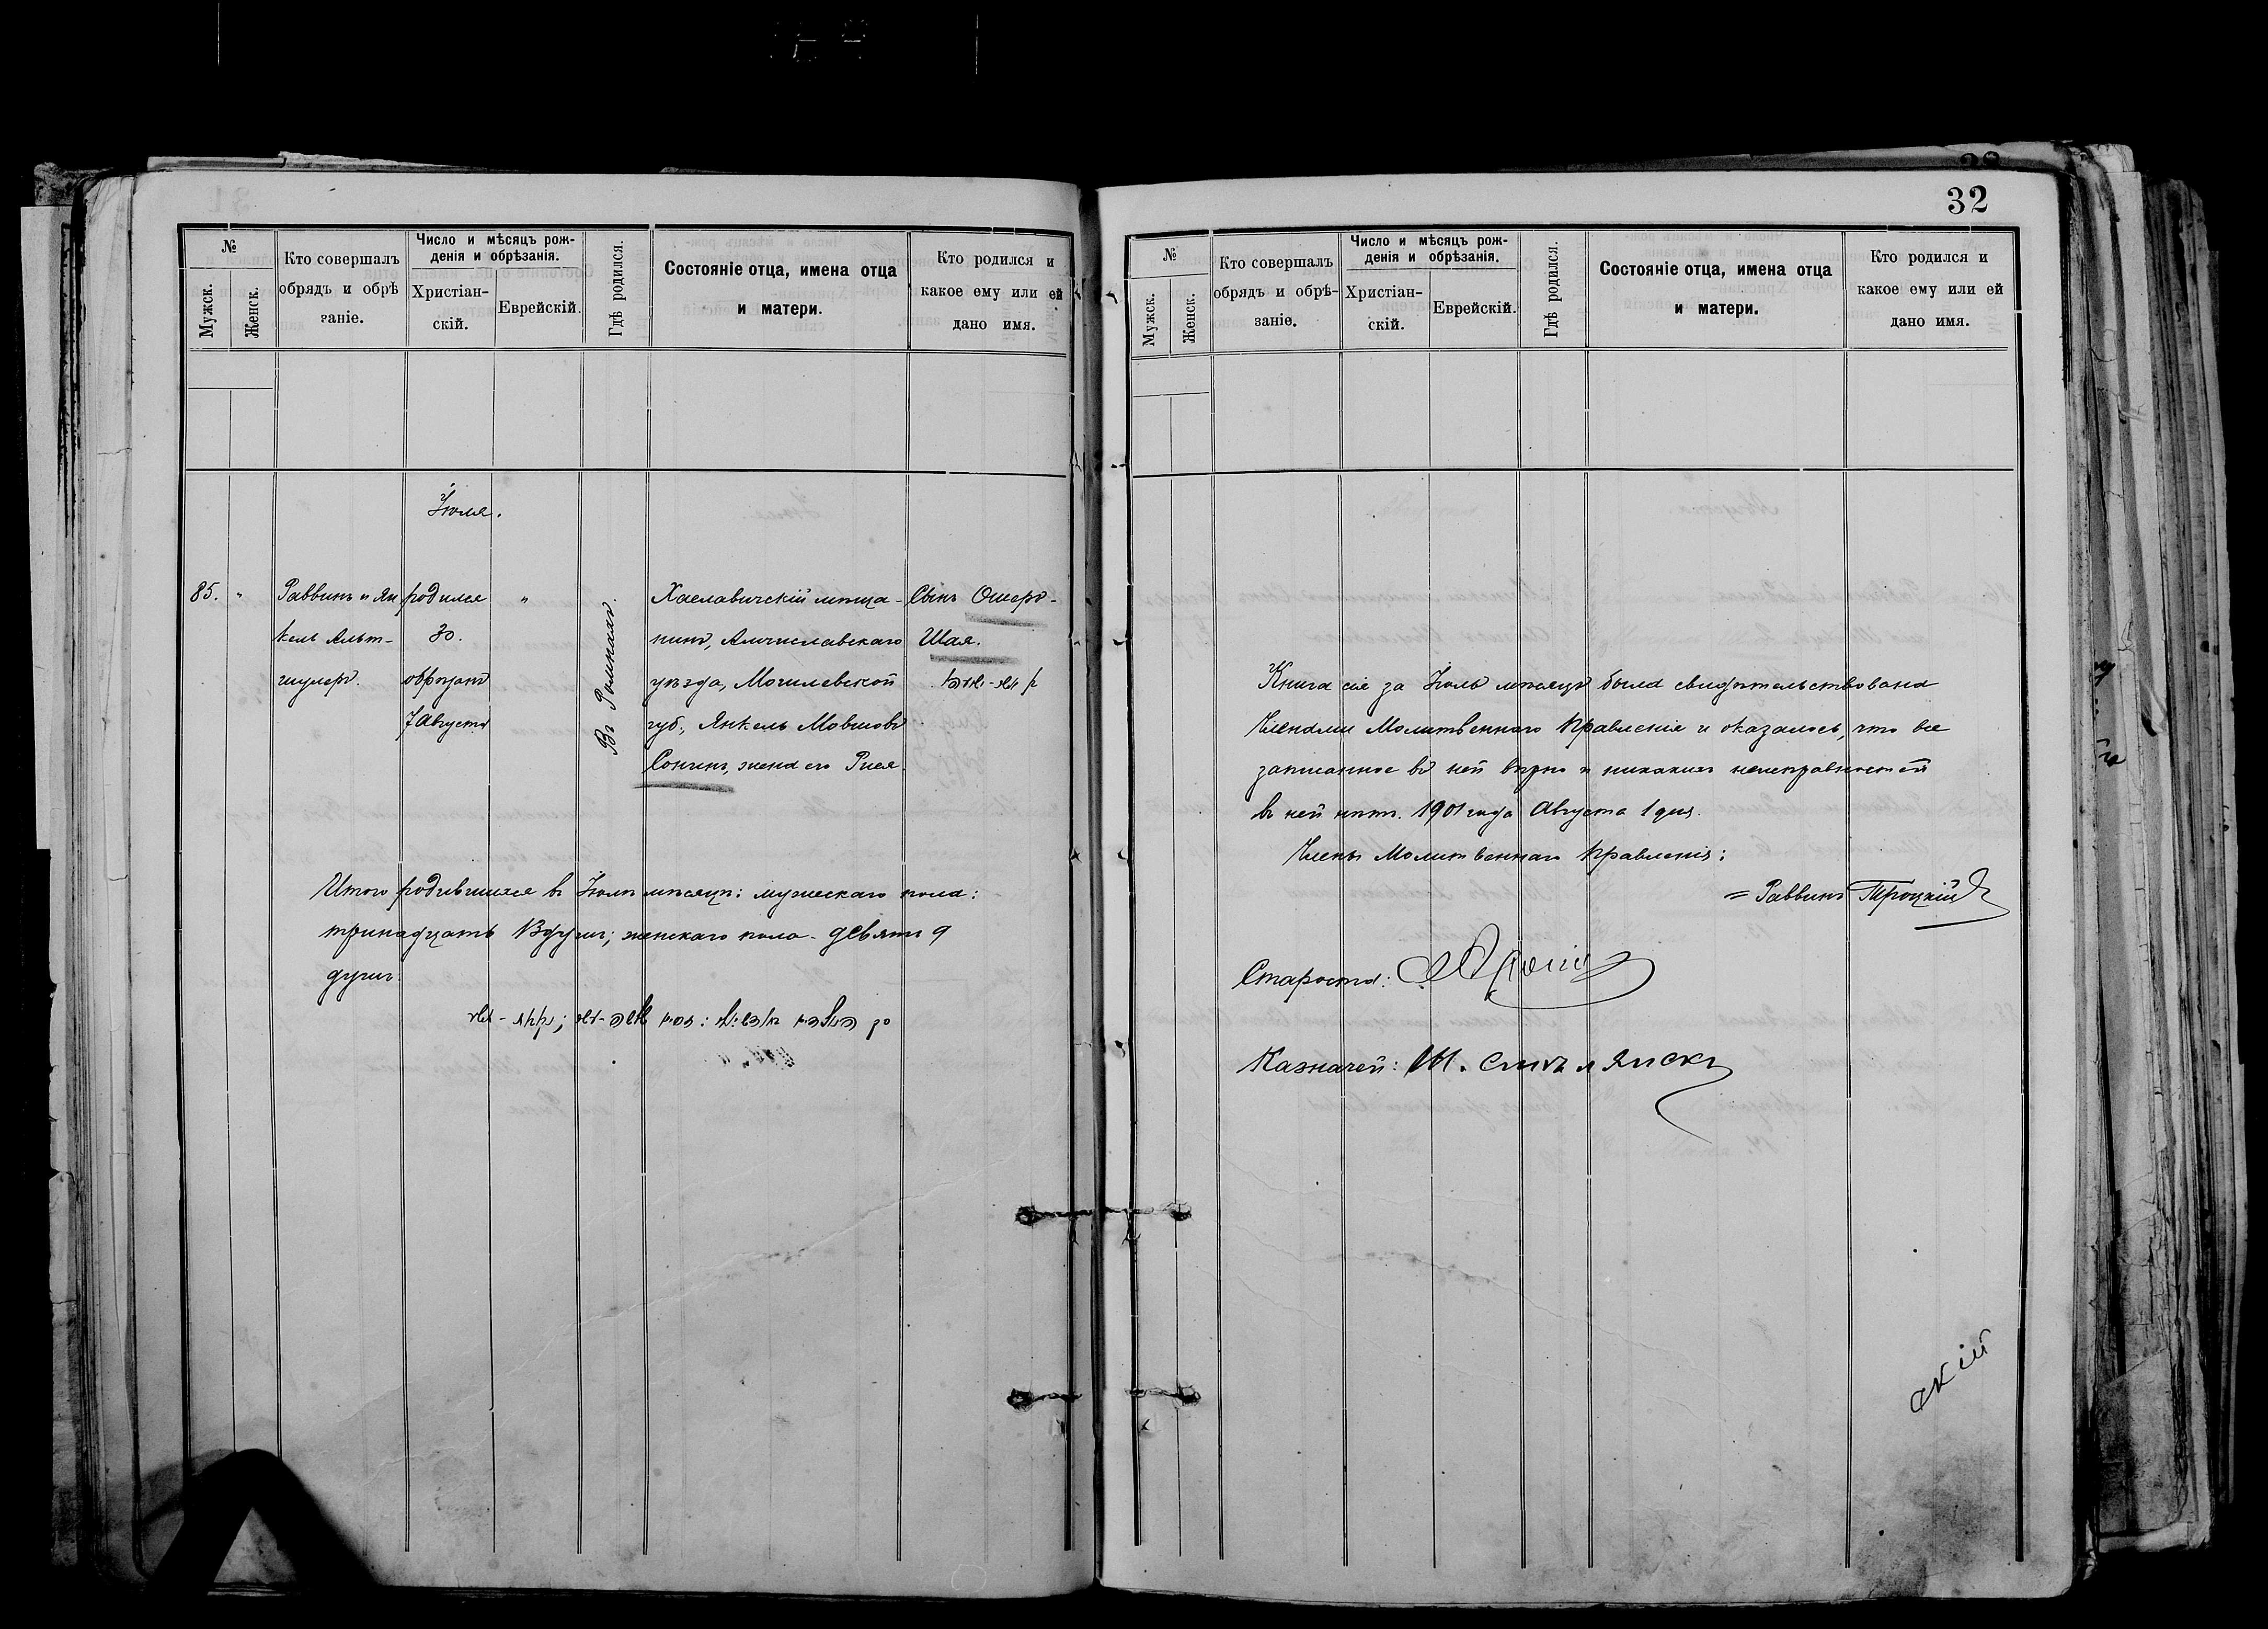 32
№
Мужск.
Женск.
Кто совершалъ
обрядъ и обрѣ
заніе.
Число и мѣсяцъ рож-
денія и обрѣзанія.
Христіан-
скій.
Еврейскій.
Гдѣ родился.
Состояніе отца, имена отца
и матери.
Кто родился и
какое ему или ей
дано имя.
Іюля.
85.
"
Раввинъ и Ян
кель Альт-
шулеръ.
родился
30.
обрѣзанъ
7 Августа
"
Въ Ромнахъ.
Хаславичскій мѣща-
нинъ, Мстиславскаго
уѣзда, Могилевской
губ., Янкель Мовшовъ
Сонинъ, жена его Рися.
Сынъ Ошеръ-
Шая.
Итого родившихся въ Іюлѣ мѣсяцѣ: мужескаго пола:
тринадцать 13 душъ; женскаго пола - девять 9
душъ.
№
Мужск.
Женск.
Кто совершалъ
обрядъ и обрѣ-
заніе.
Число и мѣсяцъ рож-
денія и обрѣзанія.
Христіан-
скій.
Еврейскій.
Гдѣ родился.
Состояніе отца, имена отца
и матери.
Кто родился и
какое ему или ей
дано имя.
Книга сія за Іюль мѣсяцъ была свидѣтельствована
Членами Молитвеннаго Правленія и оказалось, что все
записанное въ ней вѣрно и никакихъ неисправностей
въ ней нѣтъ. 1901 года Августа 1 дня.
Члены Молитвеннаго Правленія:
= Раввинъ Троцкій
Староста:
Казначей: М.
скій